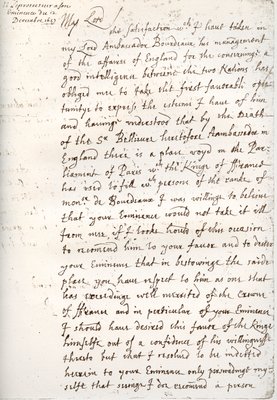 Le protecteur a son
Eminence du 12
Decembre 1657
May Lord
the satisfaction wch I have taken in
my Lord Ambassador Bourdeaux his management
of the affaires of England for the conserving
good intelligence betwixt the two Nations has
obliged mee to take the first favorable oppor
tunitye to express the esteeme I have of him
and havinge understood that by the death
of the Sr Bellievre heretofore Ambassador in
England there is a place voyd in the Par
liament of Paris wch the Kings of ffrance
has used to fill wth persons of the ranke of
monsr de Bourdeaux I was willinge to believe
that your Eminence would not take it ill
from mee, if I tooke hould of this occasion
to recomend him to your favor and to desire
your Eminence that in bestowinge the saide
place, you have respect to him as one that
has exceedinge well merited of the Crowne
of ffrance and in particular of your Eminence
I should have desired this favor of the Kinge
himselfe out of a confidence of his willingnesse
thereto but that I resolved to be indebted
herein to your Eminence only promisinge my
selfe that seeinge I doe recomend a person